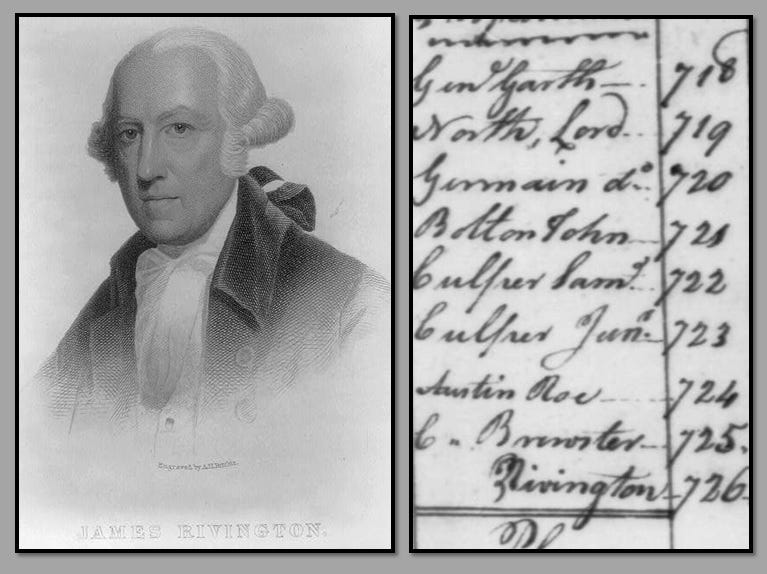 Engraved by A.H. Ritchie.
JAMES RIVINGTON.
Genl Garth 718
North, Lord 719
Germain do 720
Bolton John 721
Culper Saml 722
Culper Junr 723
Austin Roe 724
C. Brewster 725.
Rivington 726